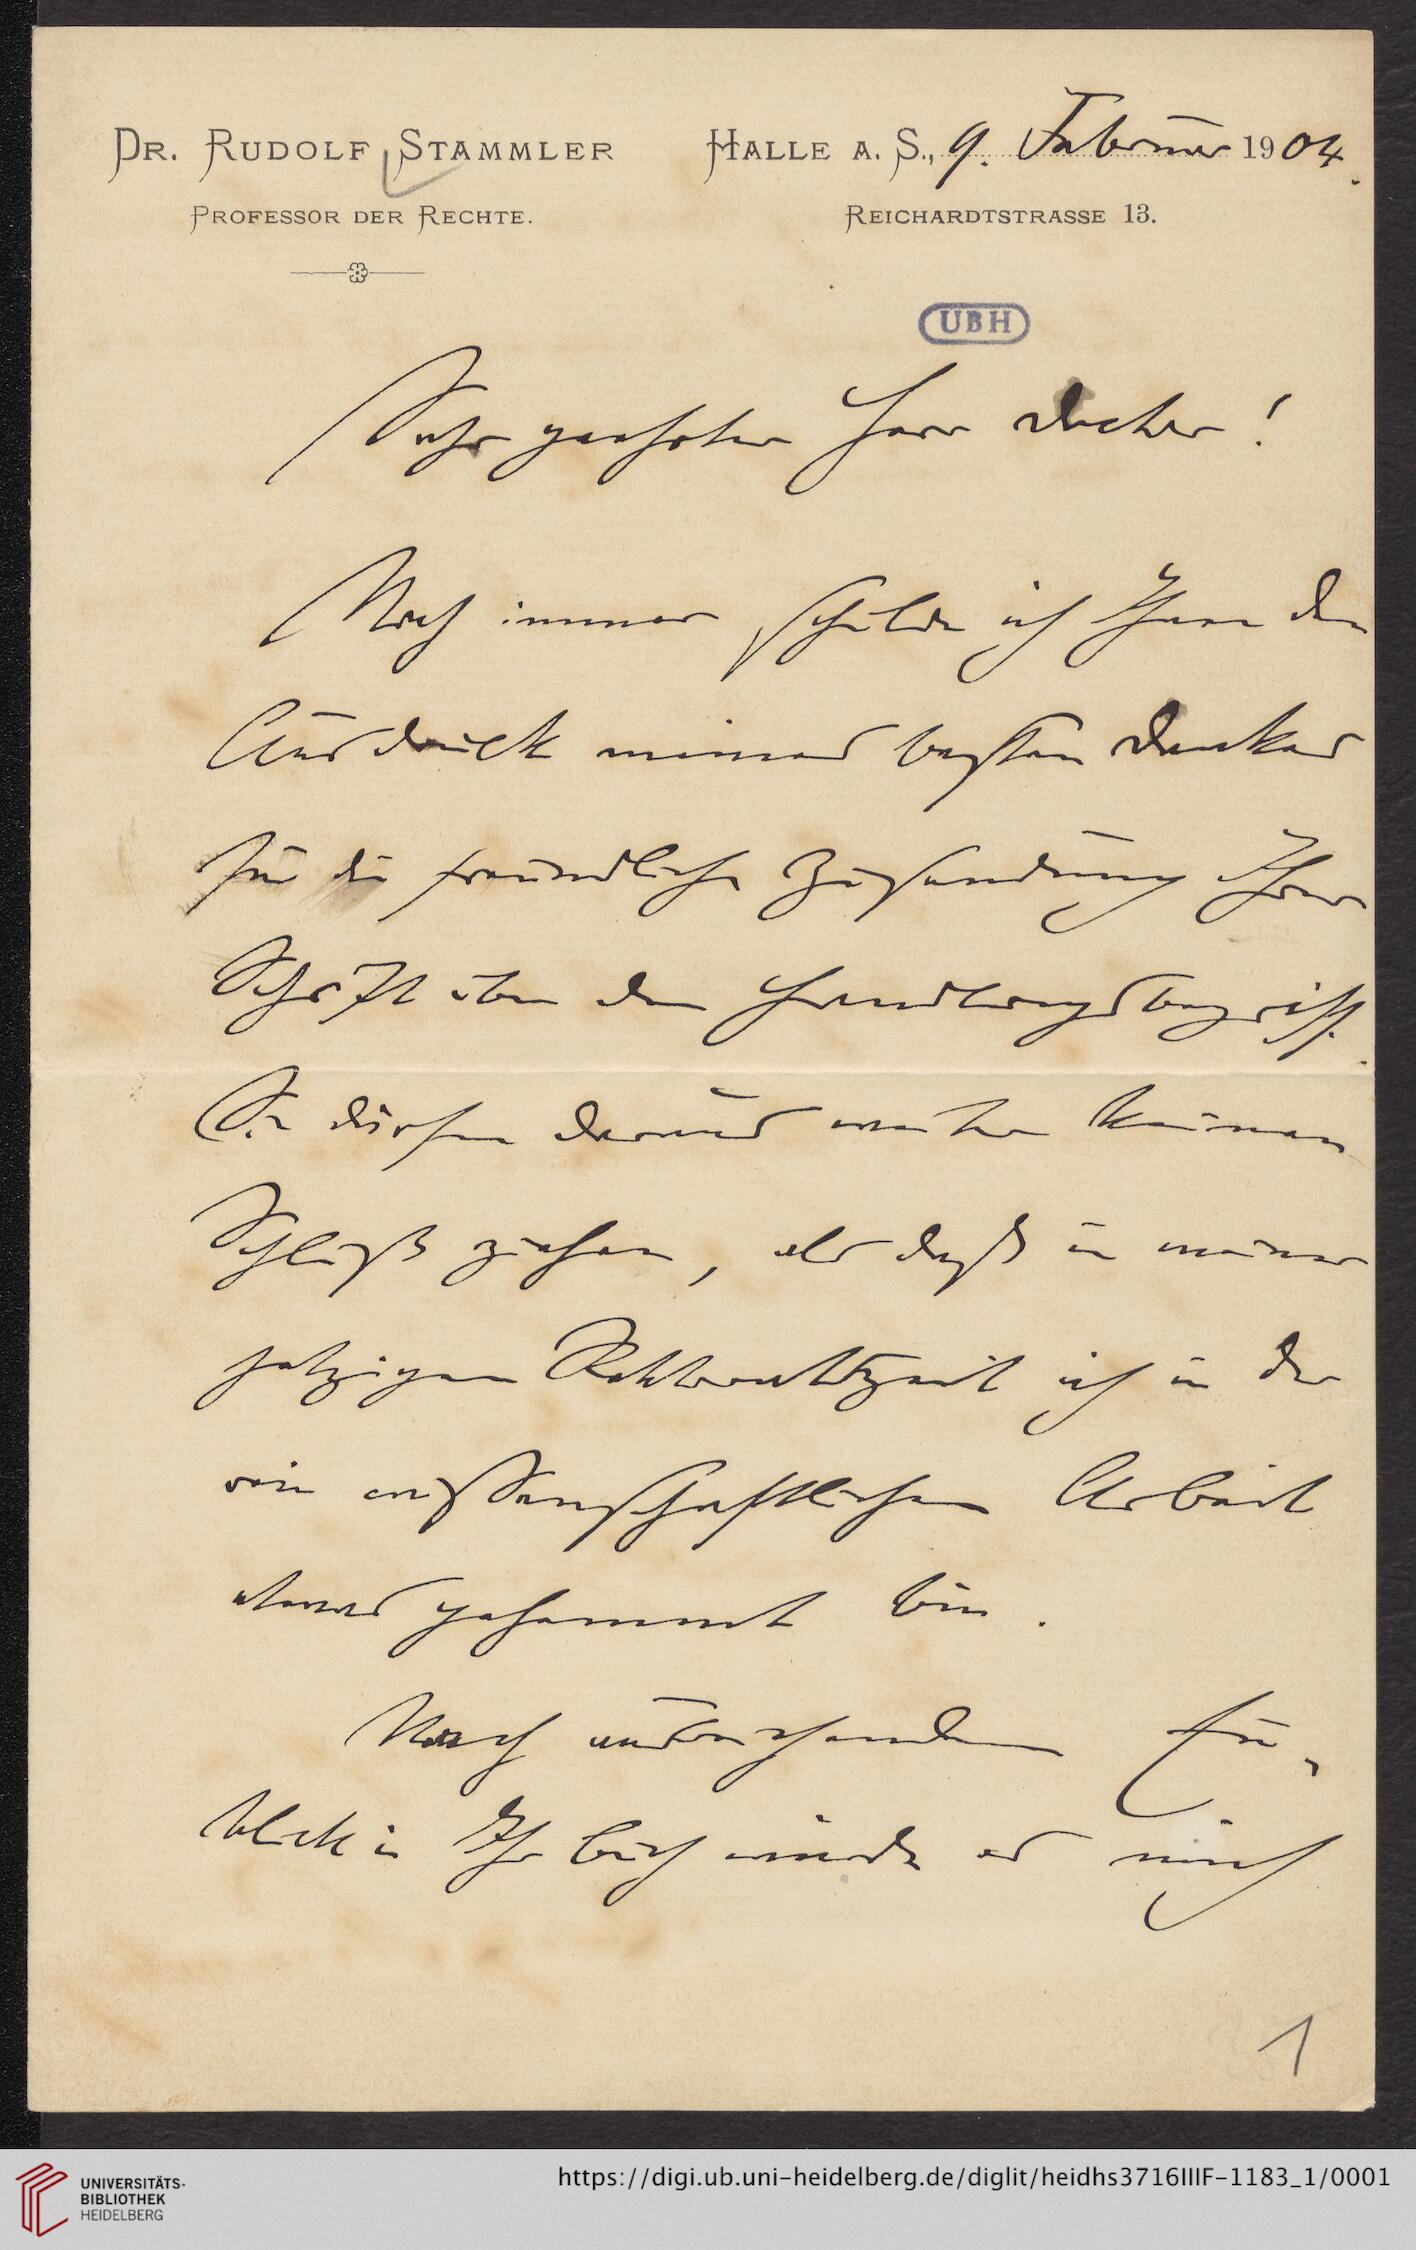 Dr. Rudolf Stammler
Professor der Rechte.
Halle a. S., 9. Februar 1904.
Reichardtstrasse 13.
UBH
Sehr geehrter Herr Doctor!
Noch immer schulde ich Ihnen den
Ausdruck meines besten Dankes
für die freundliche Zusendung Ihrer
Schrift über den Handlungsbegriff.
Sie dürfen daraus weiter keinen
Schluß ziehen, als daß in meiner
jetzigen Rektoratszeit ich in der
rein wissenschaftlichen Arbeit
etwas gehemmt bin.
Nach
blick in Ihr Buch würde es mich
1
UNIVERSITÄTS-
BIBLIOTHEK
HEIDELBERG
https://digi.ub.uni-heidelberg.de/diglit/heidhs3716IIIF-1183_1/0001